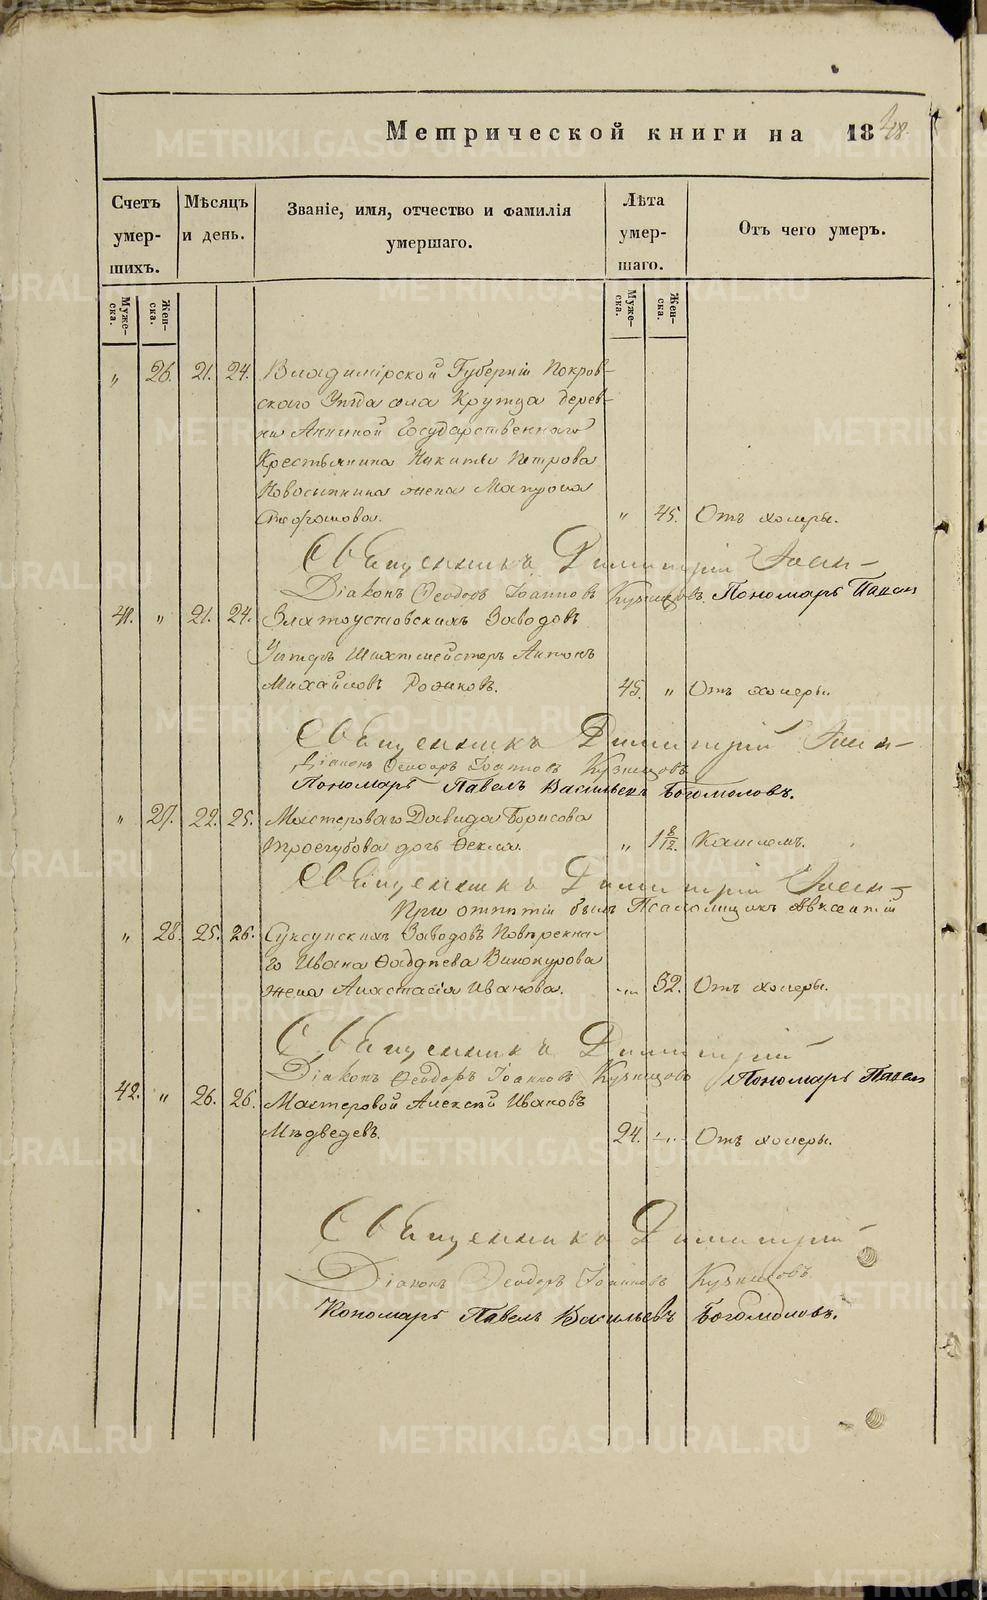 Метрической книги на 1848.
Счетъ умер-шихъ.
Мѣсяцъ и день.
Званіе, имя, отчество и фамилія умершаго.
Лѣта умер-шаго.
Отъ чего умеръ.
Муже-ска.
Жен-ска.
Муже-ска.
Жен-ска.
„ 26. 21. 24. Владимірской Губерніи Покров-
скаго Уѣзда села Крутца дерев-
ни Анкиной Государственнаго
Крестьянина Никиты Петрова
жена
„ 45. Отъ холеры.
Священникъ Димитрій
Діаконъ Ѳеодоръ Іоанновъ Кузнецовъ Пономарь Павел
41. „ 21. 24. Златоустовскихъ Заводовъ
Унтеръ Шихтмейстеръ Антонъ
Михайловъ 45. „ Отъ холеры.
Священникъ Димитрій
Діаконъ Ѳеодоръ Іоанновъ Кузнецовъ
Пономарь Павелъ Васильевъ Богомоловъ.
„ 27. 22. 25. Мастероваго Давида Борисова
Троегубова дочь Ѳекла. „ 1 8/12. Кашлемъ.
Священникъ Димитрій
При отпѣтіи былъ Псаломщикъ Авксентій
„ 28. 25. 26. Суксунскихъ Заводовъ
Ивана Фаддѣева Винокурова
жена Анастасія Иванова. „ 52. Отъ холеры.
Священникъ Димитрій
Діаконъ Ѳеодоръ Іоанновъ Кузнецовъ Пономарь Павел
42. „ 26. 26. Мастеровой Алексѣй Ивановъ
Мѣдведевъ. 24. „ Отъ холеры.
Священникъ Димитрій
Діаконъ Ѳеодоръ Іоанновъ Кузнецовъ
Пономарь Павелъ Васильевъ Богомоловъ.
METRIKI.GASO-URAL.RU